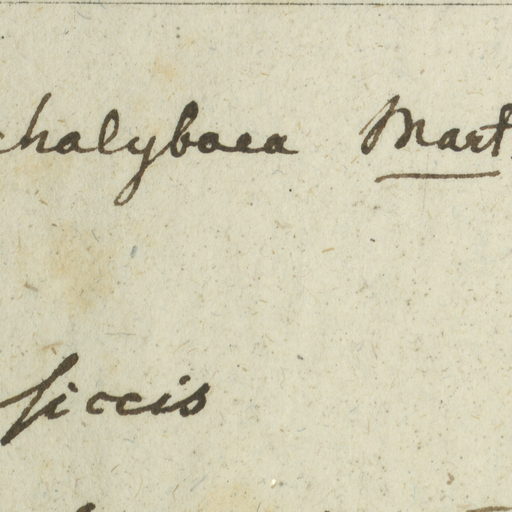 chalybaea Mart.
siccis